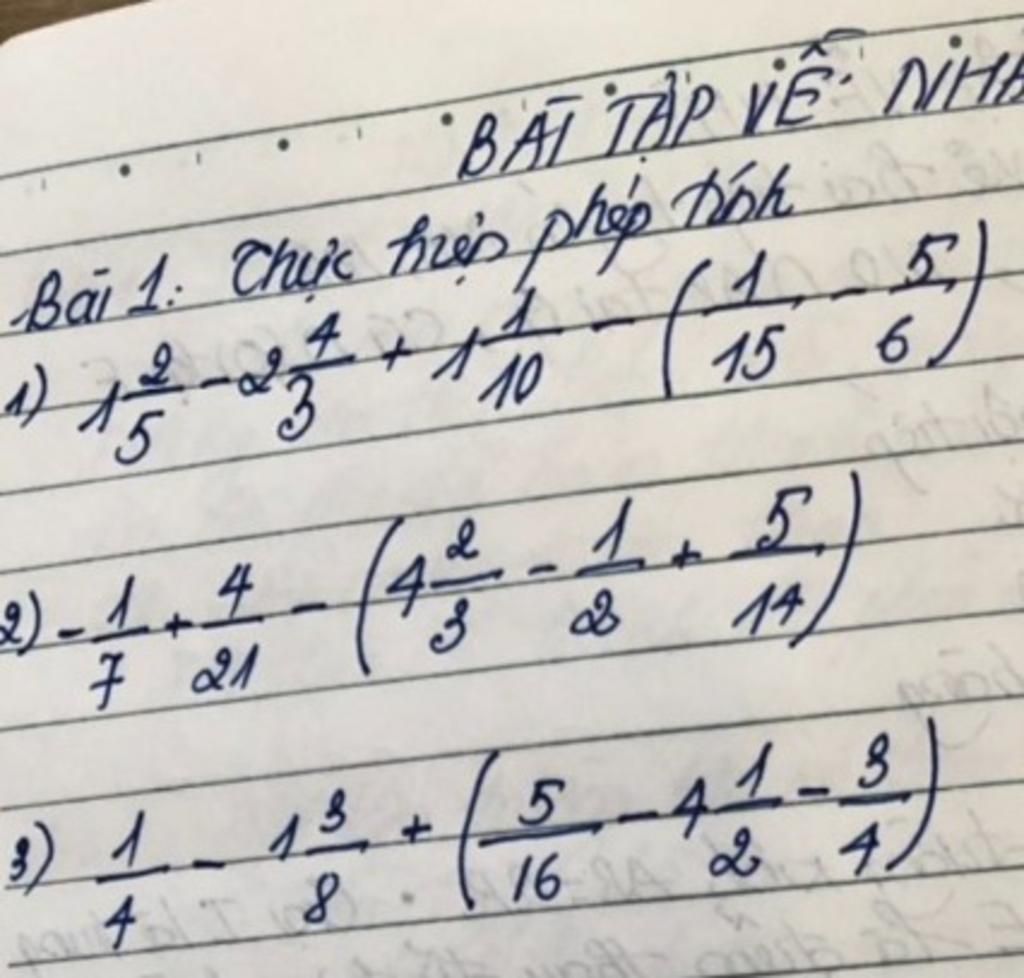 BÀI TẬP VỀ NHÀ
Bài 1: Thực hiện phép tính
1) 1 2/5 - 2 4/3 + 1 1/10 - (1/15 - 5/6)
2) - 1/7 + 4/21 - (4 2/3 - 1/2 + 5/14)
3) 1/4 - 1 3/8 + (5/16 - 4 1/2 - 3/4)